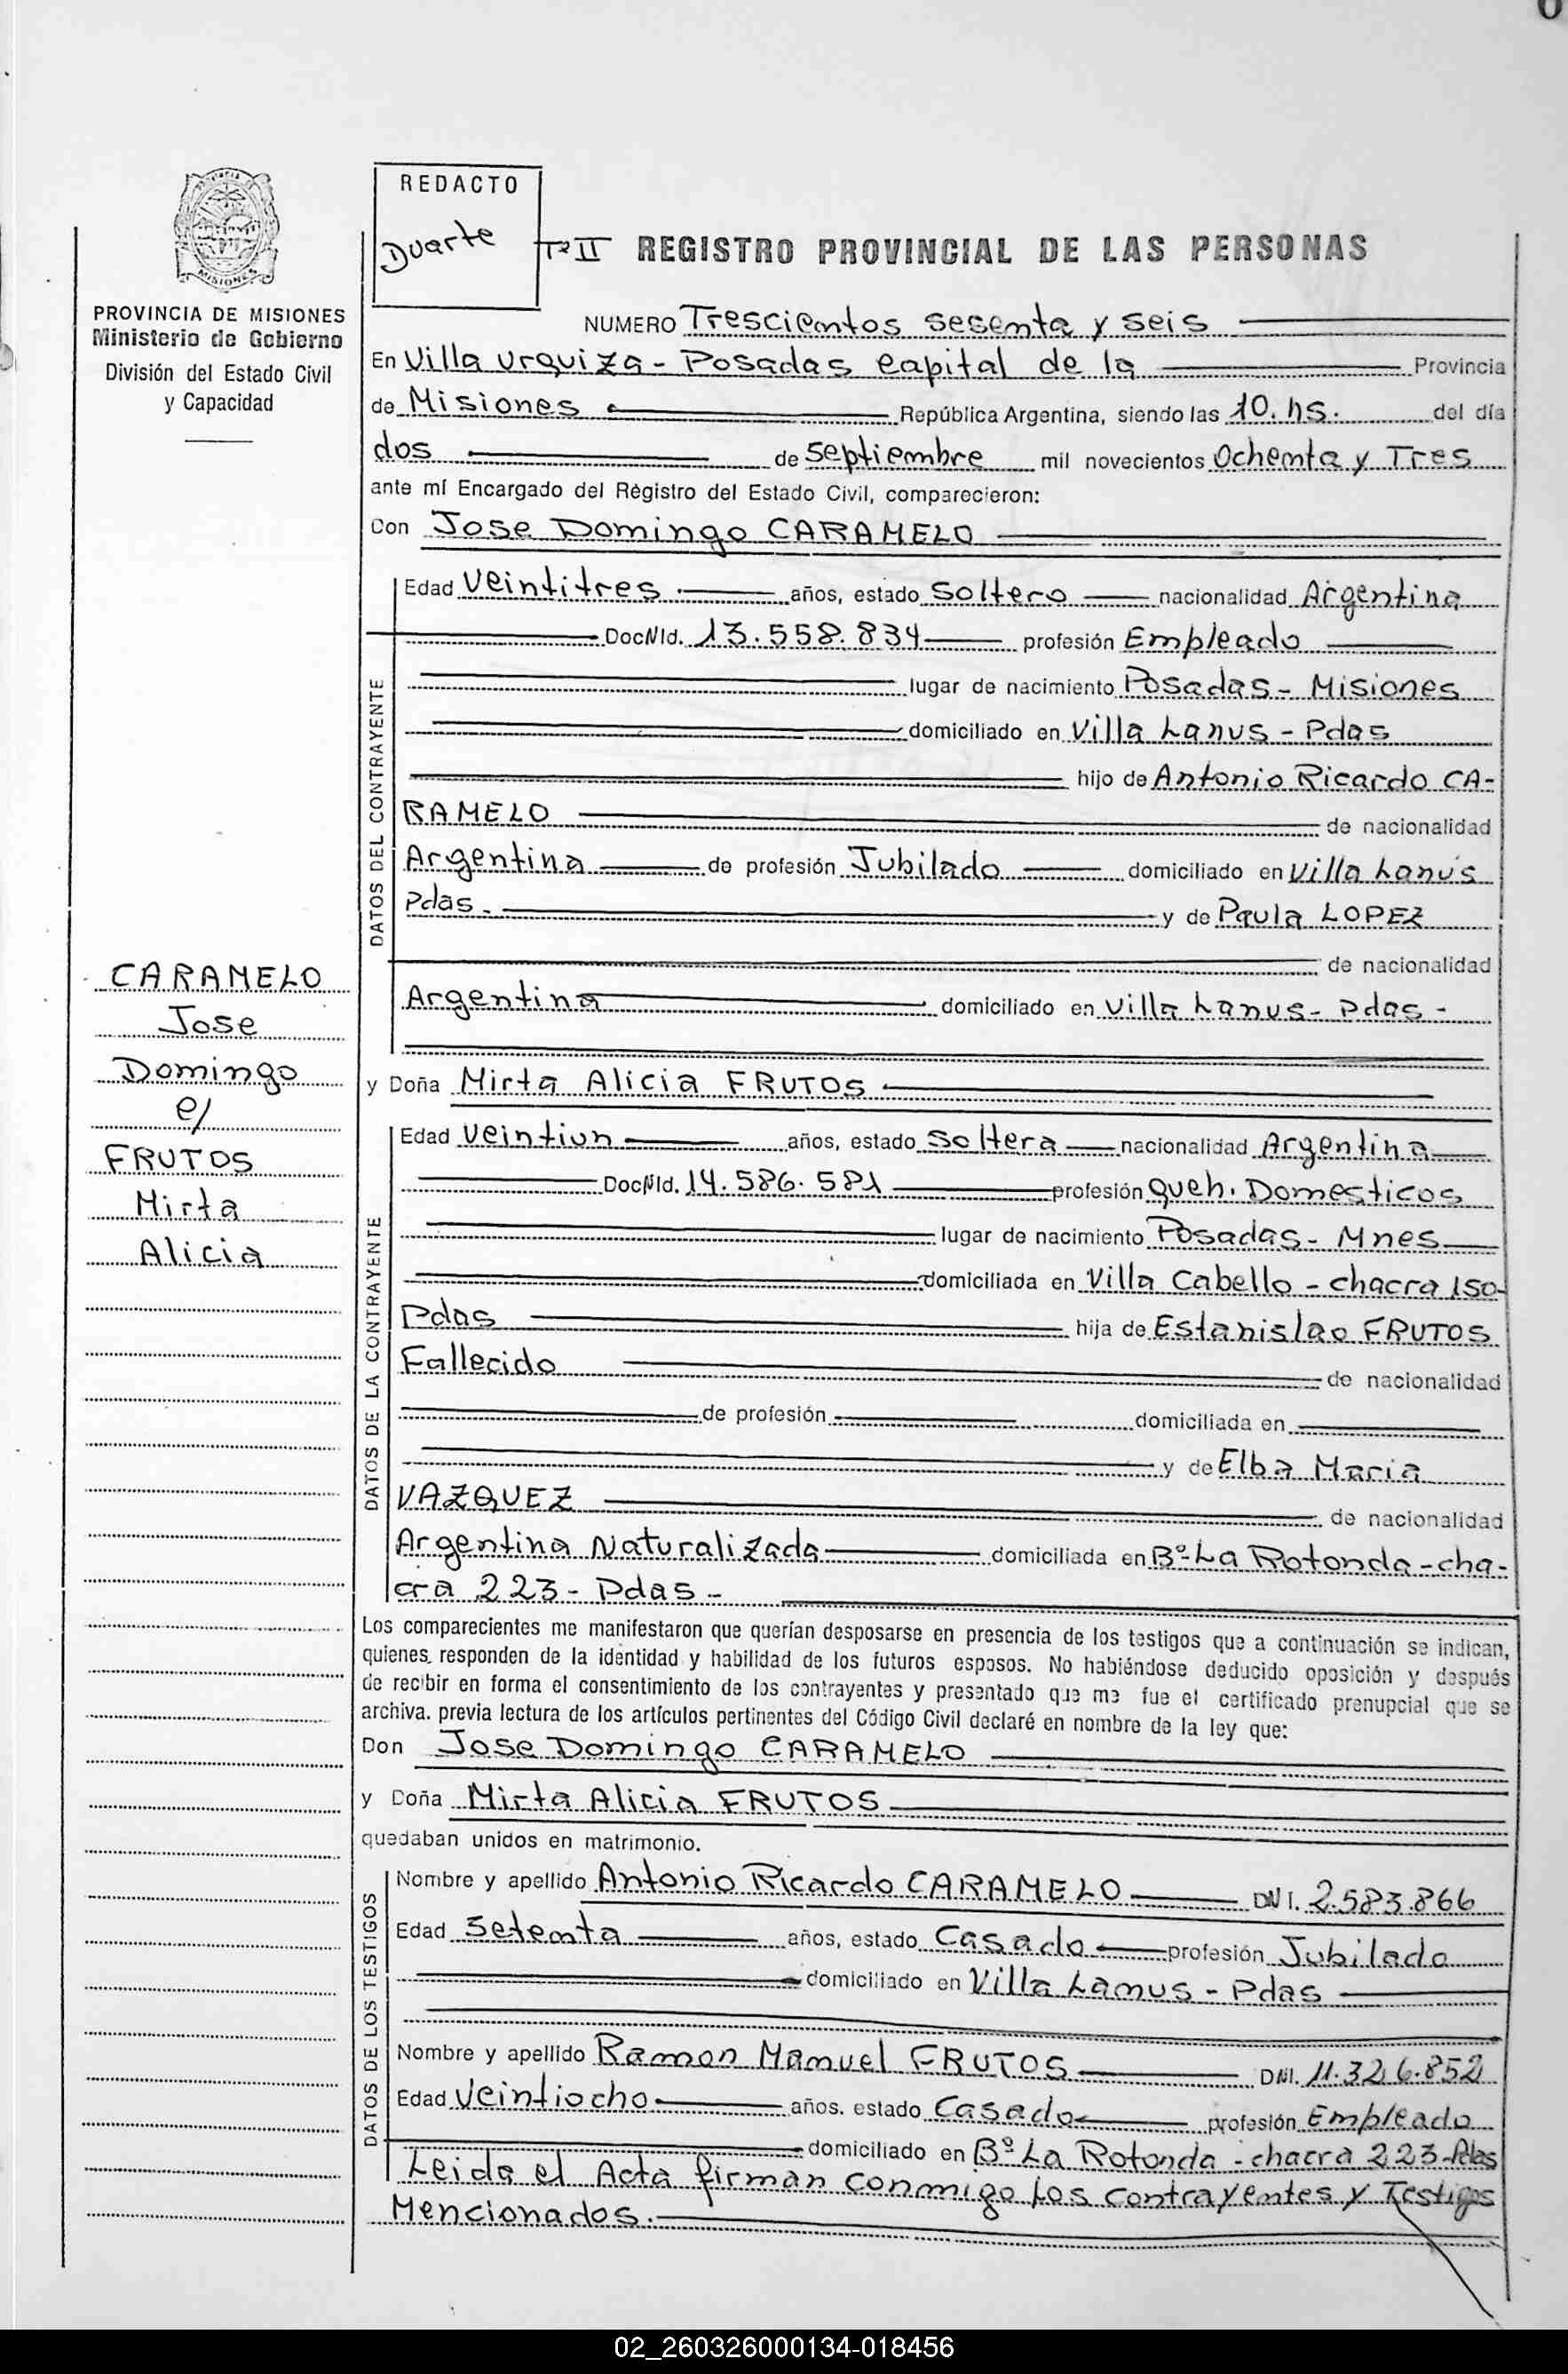 REDACTO
Duarte
Tº II REGISTRO PROVINCIAL DE LAS PERSONAS
PROVINCIA DE MISIONES
Ministerio de Gobierno
División del Estado Civil
y Capacidad
NUMERO Trescientos sesenta y seis
En Villa Urquiza - Posadas capital de la Provincia
de Misiones República Argentina, siendo las 10. hs. del día
dos de septiembre mil novecientos Ochenta y Tres
ante mí Encargado del Registro del Estado Civil, comparecieron:
Con Jose Domingo CARAMELO
DATOS DEL CONTRAYENTE
Edad Veintitres años, estado Soltero nacionalidad Argentina
Doc Nld. 13.558.834 profesión Empleado
lugar de nacimiento Posadas - Misiones
domiciliado en Villa Lanus - Pdas
hijo de Antonio Ricardo CA-
RAMELO de nacionalidad
Argentina de profesión Jubilado domiciliado en Villa Lanús
Pdas. y de Paula LOPEZ
de nacionalidad
Argentina domiciliado en Villa Lanus - Pdas -
CARAMELO
Jose
Domingo
e/
FRUTOS
Mirta
Alicia
y Doña Mirta Alicia FRUTOS
DATOS DE LA CONTRAYENTE
Edad Veintiun años, estado Soltera nacionalidad Argentina
Doc Nld. 14.586.581 profesión Queh. Domesticos
lugar de nacimiento Posadas - Mnes
domiciliada en Villa Cabello - chacra 150-
Pdas hija de Estanislao FRUTOS
Fallecido de nacionalidad
de profesión domiciliada en
y de Elba Maria
VAZQUEZ de nacionalidad
Argentina Naturalizada domiciliada en Bº La Rotonda - cha-
cra 223 - Pdas -
Los comparecientes me manifestaron que querían desposarse en presencia de los testigos que a continuación se indican,
quienes responden de la identidad y habilidad de los futuros esposos. No habiéndose deducido oposición y después
de recibir en forma el consentimiento de los contrayentes y presentado que me fue el certificado prenupcial que se
archiva. previa lectura de los artículos pertinentes del Código Civil declaré en nombre de la ley que:
Don Jose Domingo CARAMELO
y Doña Mirta Alicia FRUTOS
quedaban unidos en matrimonio.
DATOS DE LOS TESTIGOS
Nombre y apellido Antonio Ricardo CARAMELO DNI. 2.583.866
Edad Setenta años, estado Casado profesión Jubilado
domiciliado en Villa Lanus - Pdas
Nombre y apellido Ramon Manuel FRUTOS DNI. 11.326.852
Edad Veintiocho años. estado Casado profesión Empleado
domiciliado en Bº La Rotonda - chacra 223 - Pdas
Leida el Acta firman conmigo los contrayentes y Testigos
Mencionados.
02_260326000134-018456